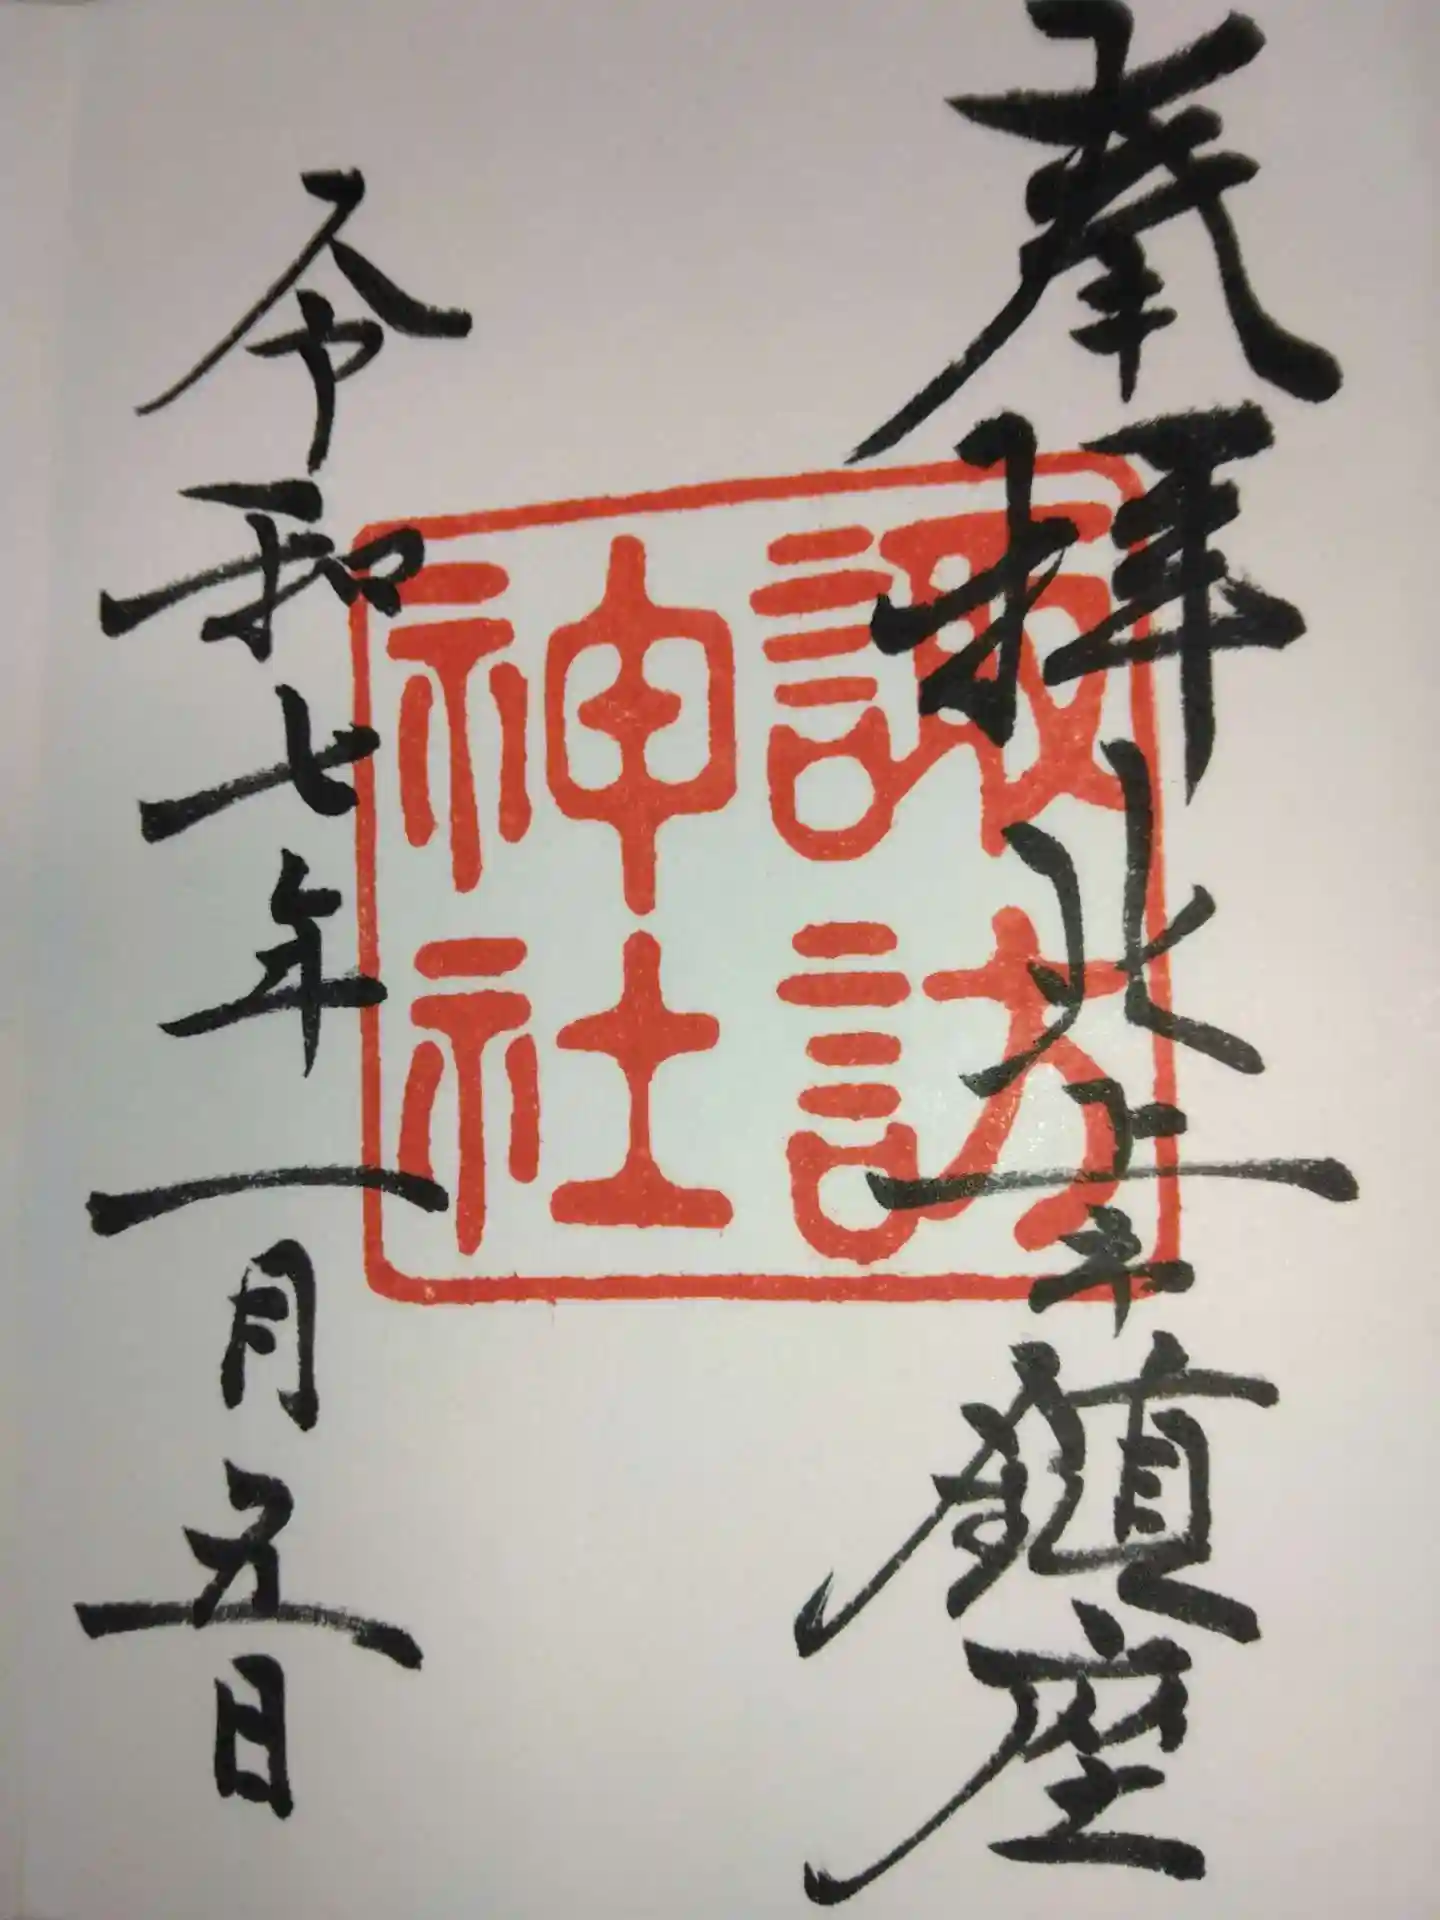 奉拝 北上市鎮座
諏訪
神社
令和七年一月五日